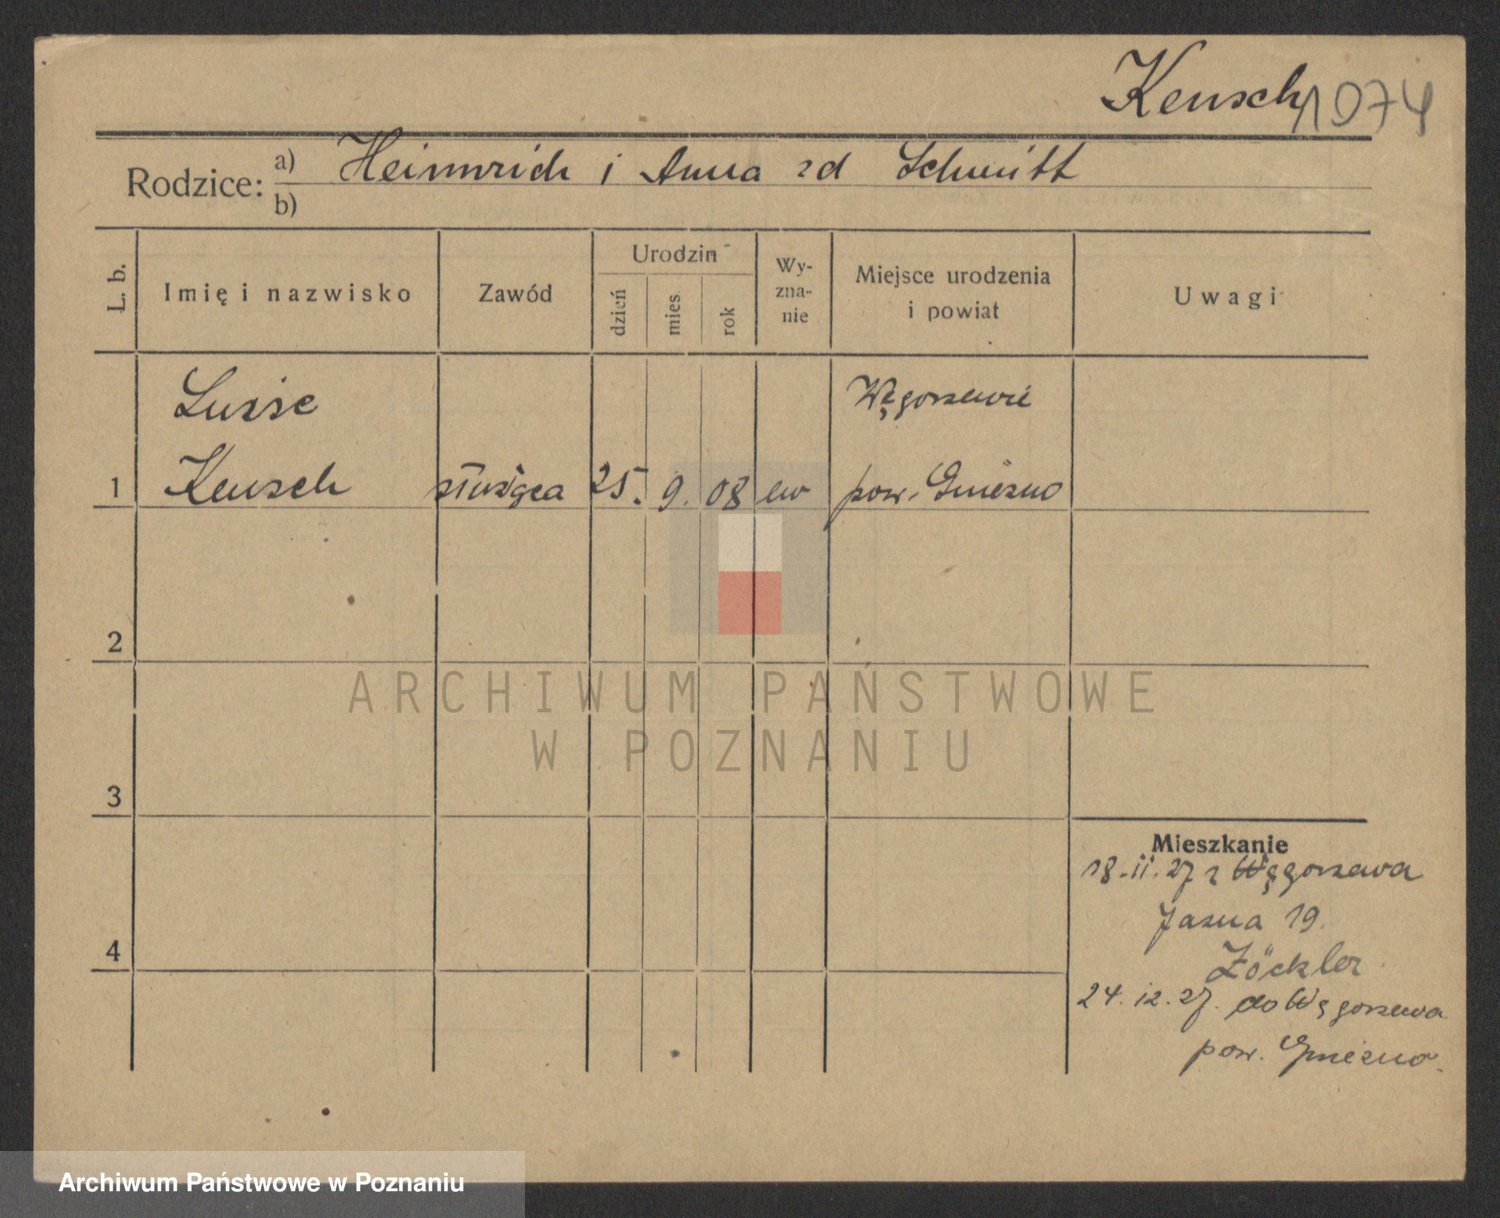 Keusch 1974
Rodzice: a) Heinrich i Anna zd Schmitt
b)
L. b. Imię i nazwisko Zawód Urodzin dzień mies rok Wy-zna-nie Miejsce urodzenia i powiat Uwagi
Luise Węgorzewie
1 Keusch służąca 25. 9. 08 ew pow. Gniezno
2
ARCHIWUM PAŃSTWOWE
W POZNANIU
3
Mieszkanie
18.11.27 z Węgorzewa
Jasna 19.
4
Zöckler
24.12.27. do Węgorzewa
pow. Gniezno.
Archiwum Państwowe w Poznaniu